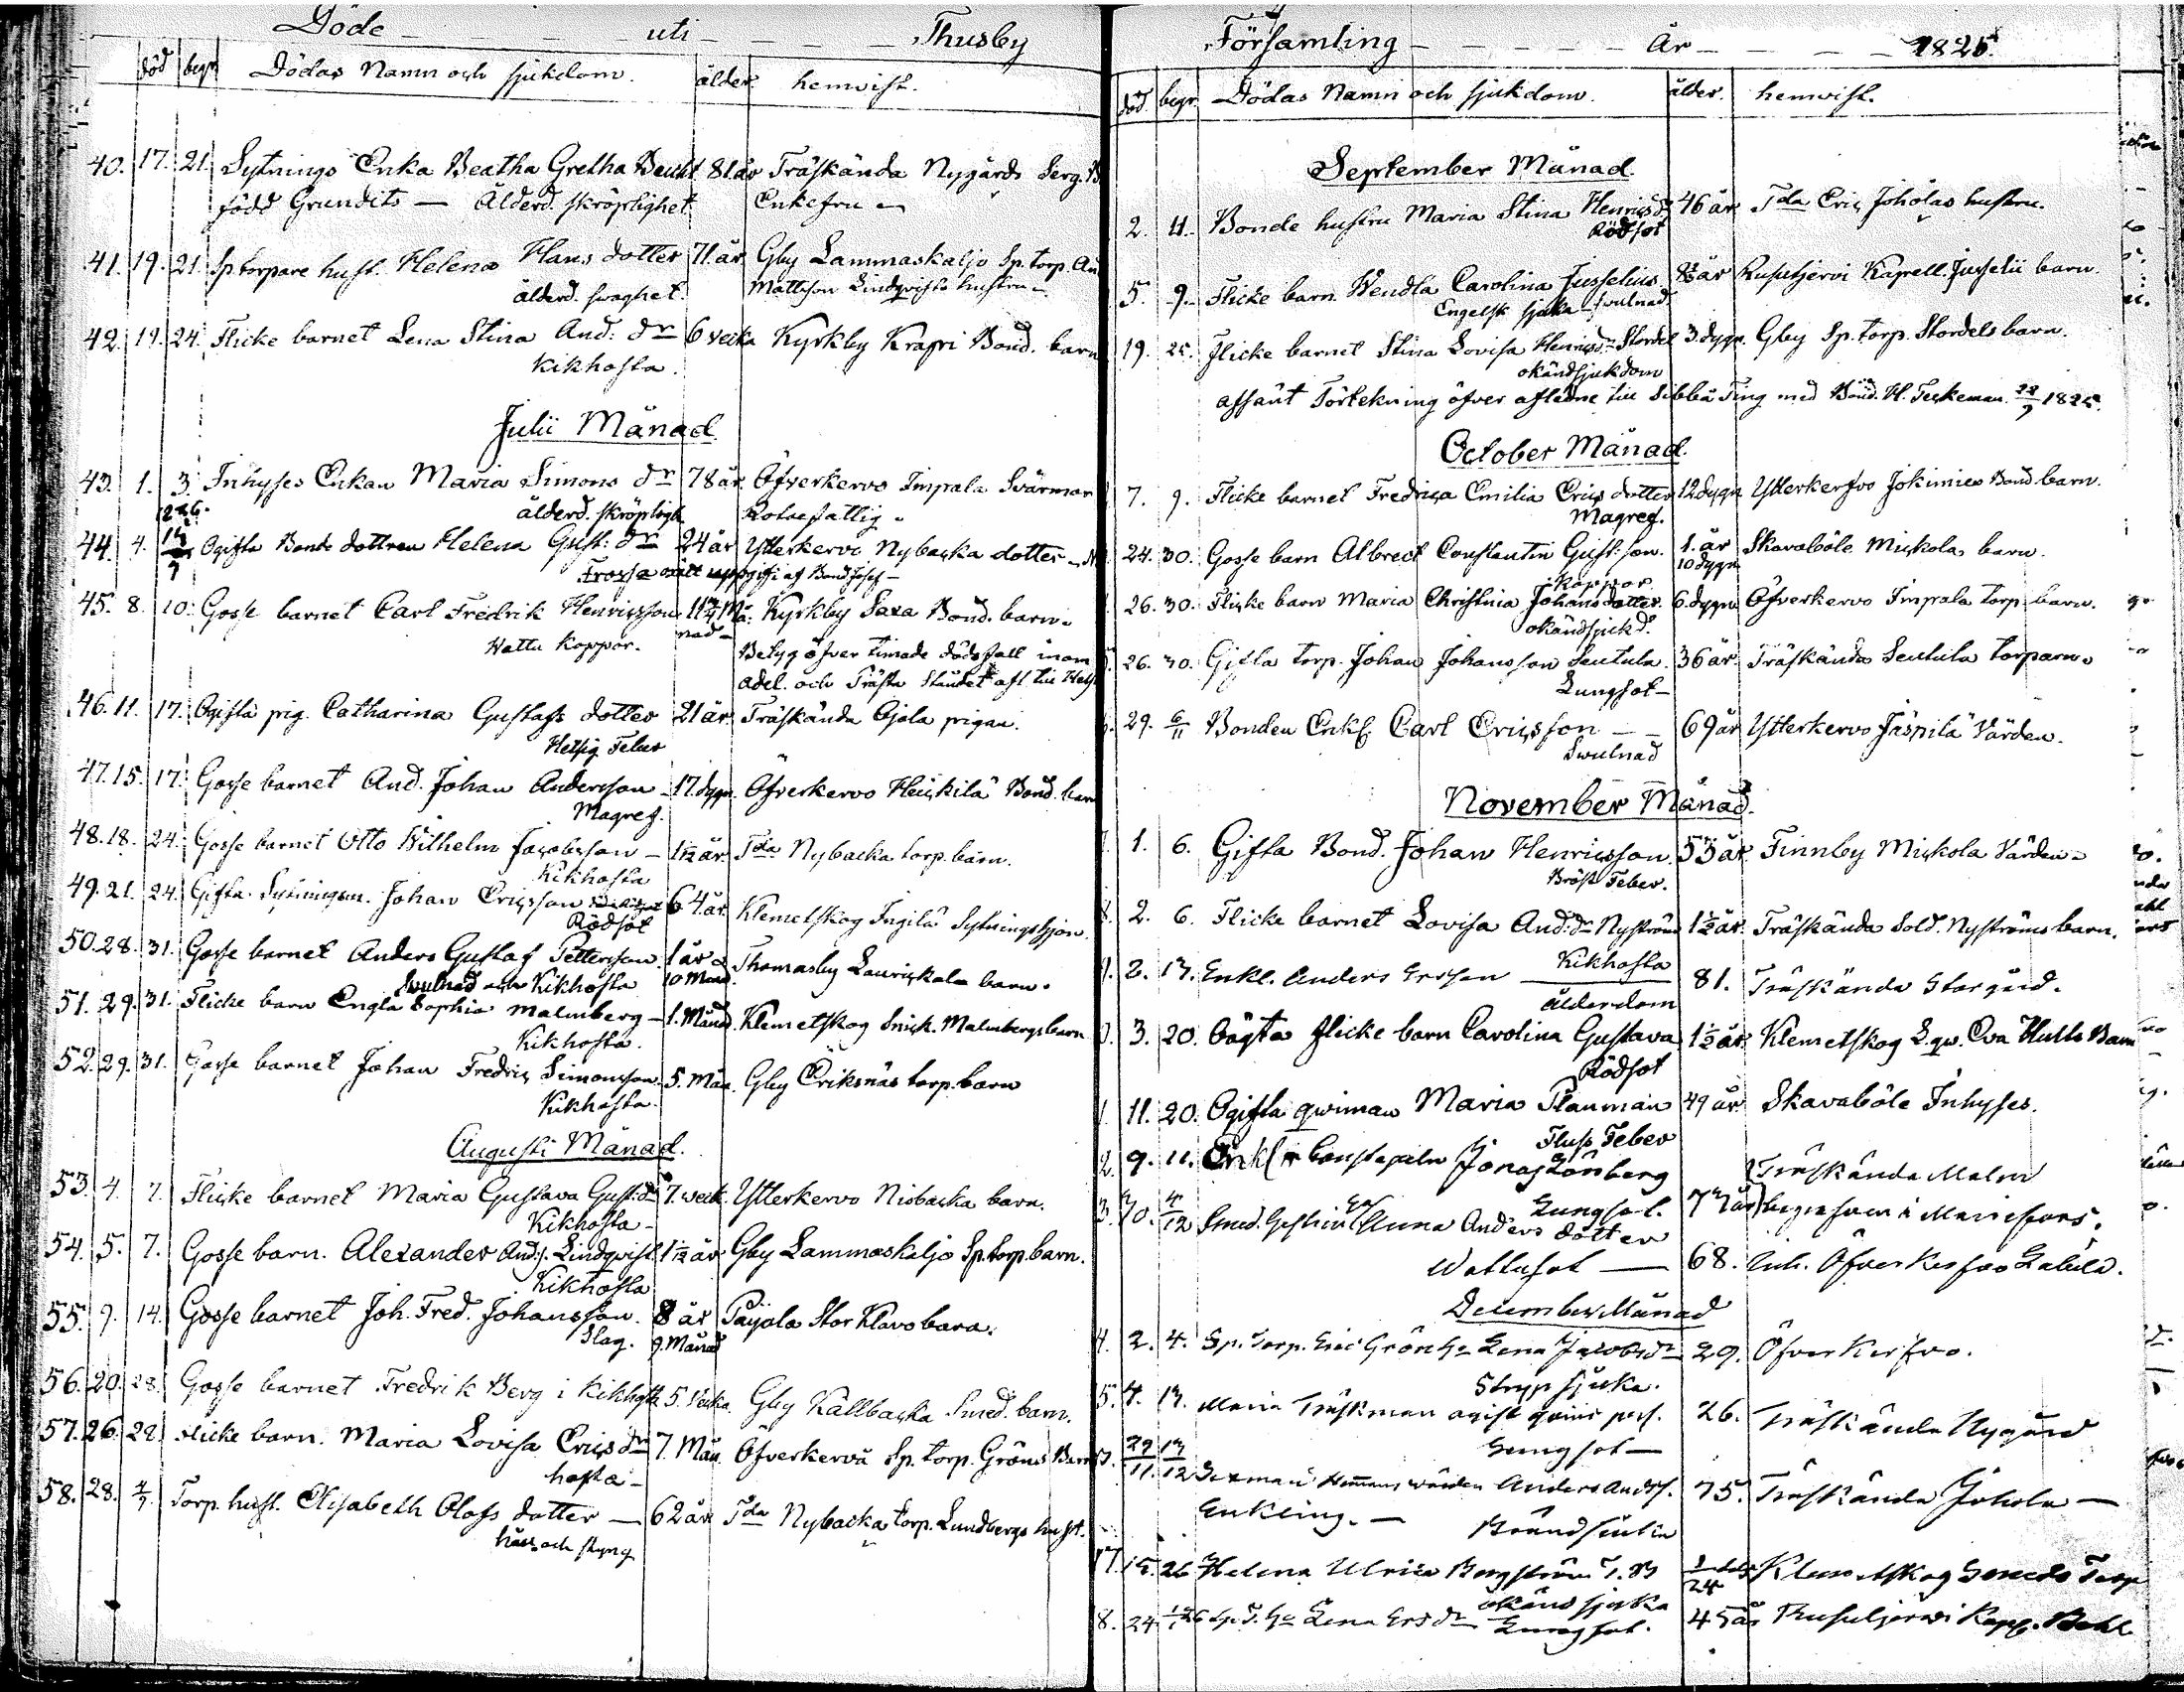 Döde - uti - Thusby
död begr. Dödas Namn och sjukdom. ålder hemvist.
40. 17. 21. Sytnings Enka Beatha Gretha 81 år Träskända Nygårds Serg.
född Grundits — Ålderd. skröplighet. Enkefru
41. 19. 21. Sp. torpare hust. Helena Hans dotter 71 år Gby Lammaskaljo Sp. torp. An
ålderd. svaghet. Mattsson Lindqvists hustru
42. 19. 24. Flicke barnet Lena Stina And: dr 6 veck Kyrkby Krapri Bond. barn
Kikhosta.
Julii Månad.
43. 1. 3. Inhyses Enkan Maria Simons dr 78 år Öfverkervo Impala Svärmor
ålderd. skröpligh. Rotefattig
44. 4. Ogifta Bonde dottren Helena Gust: dr 24 år Ytterkervo Nybacka dotter
uppgift af Bond Josef
45. 8. 10. Gosse barnet Carl Fredrik Henricsson 11 Må- Kyrkby Saxa Bond. barn
Wattu Koppor. nad
Betyg öfver timade dödsfall inom
adel. och Präste Ståndet afl. till
46. 11. 17. Ogifta pig. Catharina Gustafs dotter 21 år Träskända Ojala pigan.
Hetsig Feber
47. 15. 17. Gosse barnet And. Johan Andersson 17 dygn. Öfverkervo Heickilä Bond. barn
Magref.
48. 18. 24. Gosse barnet Otto Wilhelm Jacobsson - 1 1/12 år Tda Nybacka torp. barn.
Kikhosta
49. 21. 24. Gifta Sytningsm. Johan Ericsson 64 år. Klemetskog Ingilä Sytningshjon.
Rödsot
50. 28. 31. Gosse barnet Anders Gustaf Pettersson 1 år Thomasby Laurickala barn.
Svulnad och Kikhosta 10 Månad
51. 29. 31. Flicke barn Engla Sophia Malmberg - 1. Månad. Klemetskog Snick. Malmbergs barn
Kikhosta.
52. 29. 31. Gosse barnet Johan Fredric Simonsson 5. Mån. Gby Eriksnäs torp. barn
Kikhosta.
Augusti Månad.
53. 4. 7. Flicke barnet Maria Gustava Gust: dr 7. veck. Ytterkervo Nisbacka barn.
Kikhosta
54. 5. 7. Gosse barn. Alexander And:s. Lindqvist 1 1/12 år Gby Lammaskaljo Sp. torp. barn.
Kikhosta
55. 9. 14. Gosse barnet Joh. Fred. Johansson. 8 år Paijala Stor Klavo barn.
Slag. 9. Månad
56. 20. 28. Gosse barnet Fredrik Berg i Kikhosta 5. Vecka. Gby Kallbacka Smed. barn.
57. 26. 28. Flicke barn. Maria Lovisa Erics dr 7. Mån. Öfverkervo Sp. torp. Gröns Barn
hosta
58. 28. Torp. hust. Elisabeth Olofs dotter — 62 år Tda Nybacka torp. Lundbergs hust.
Församling - År - 1825.
död. begr. Dödas Namn och sjukdom. ålder. hemvist.
September Månad.
2. 4. Bonde hustru Maria Stina Henricsdr 46 år Tda Eric Joholas hustru.
Rödsot
5. 9. Flicke barn Wendla Carolina Jusselius år Rusutjervi Kapell. Jusselii barn.
Engelsk sjuka svulnad.
19. 25. Flicke barnet Stina Lovisa Henricsdr Stordel 3. dygn. Gby Sp. torp. Stordels barn.
okänd sjukdom
afsänt Förtekning öfver aflidne till Sibbå Ting med Bond. H. 1825.
October Månad.
7. 9. Flicke barnet Fredrica Emilia Erics dotter 12 dygn Ytterkerfvo Jokimies Bond barn.
Magref.
24. 30. Gosse barn Albrect Constantin Gust: son. 1. år Skavaböle Mickolas barn.
Koppor 10 dygn
26. 30. Flicke barn Maria Christina Johans dotter. 6. dygn Öfverkervo Impala torp. barn.
okänd sjukd.
26. 30. Gifta torp. Johan Johansson Seutula 36 år Träskända Seutula torparn.
Lungsot
29. 6/11 Bonden Enkl. Carl Ericsson - 69 år Ytterkervo Jäspilä Värden.
Swulnad
November Månad.
1. 6. Gifta Bond. Johan Henricsson 53 år Finnby Mickola Värden
Bröst Feber.
2. 6. Flicke barnet Lovisa And: dr Nyström 1 1/2 år. Träskända Sold. Nyströms barn.
Kikhosta
2. 13. Enkl. Anders Ersson 81. Träskända Storgård.
ålderdom
3. 20. Oägta flicke barn Carolina Gustava 1 1/2 år Klemetskog L. qw. Eva Hulls Barn
Rödsot
11. 20. Ogifta qwinnan Maria Flauman 49 år Skavaböle Inhyses.
Fluss Feber
9. 11. Enkl. Constapeln Jonas Lönberg Träskända Malm
Lungsot. 77 år begrafven i
30. 4/12 Anna Anders dotter
Wattusot — 68. Inh. Öfverkerfvo
December Månad
2. 4. Sp. Torp. Eric Gröns Ha Lena Jacobsdr 29. Öfverkerfvo.
Stryp sjuka.
4. 13. Maria Träskman ogift 26. Träskända Nygård
Lungsot —
29/11. 13/12 Sexman Hemmans wärden Anders Anders. 75. Träskända Johola —
Enkling. —
15. 26 Helena Ulrica Bergström Klemetskog Smeds Torp
okänd sjuka
24. Lena Ersdr Lungsot. 45 år Rusutjerwi Kapp.